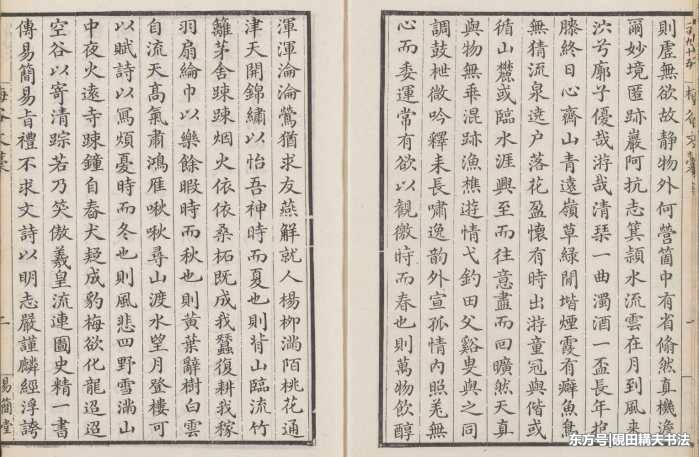 則虛無欲故靜物外何營箇中有省翛然直機澹
爾妙境匿跡巖阿抗志箕潁水流雲在月到風来
泬兮廓子優哉游哉清琴一曲濁酒一盃長年抱
膝終日心齋山青遠嶺草綠閒堦煙霞有癖魚鳥
無猜流泉遶户落花盈懷有時出游童冠與偕或
循山麓或臨水涯興至而往意盡而回曠然天真
與物無乖混跡漁樵遊情弋釣田父谿叟與之同
調鼓枻微吟釋耒長嘯逸韵外宣孤情內照羌無
心而委運常有欲以觀徼時而春也則萬物飲醇
渾渾淪淪鶯猶求友燕解就人楊柳滿陌桃花通
津天開錦繡以怡吾神時而夏也則背山臨流竹
籬茅舍踈踈烟火依依桑柘既成我蠶復耕我稼
羽扇綸巾以樂餘暇時而秋也則黃葉辭樹白雲
自流天高氣肅鴻雁啾啾尋山渡水望月登樓可
以賦詩以寫煩憂時而冬也則風悲四野雪滿山
中夜火遠寺踈鐘自舂犬疑成豹梅欲化龍迢迢
空谷以寄清踪若乃笑傲羲皇流連圖史精一書
傳易簡易肓禮不求文詩以明志嚴謹麟經浮誇
二
易簡堂
东方号|硯田耩夫书法